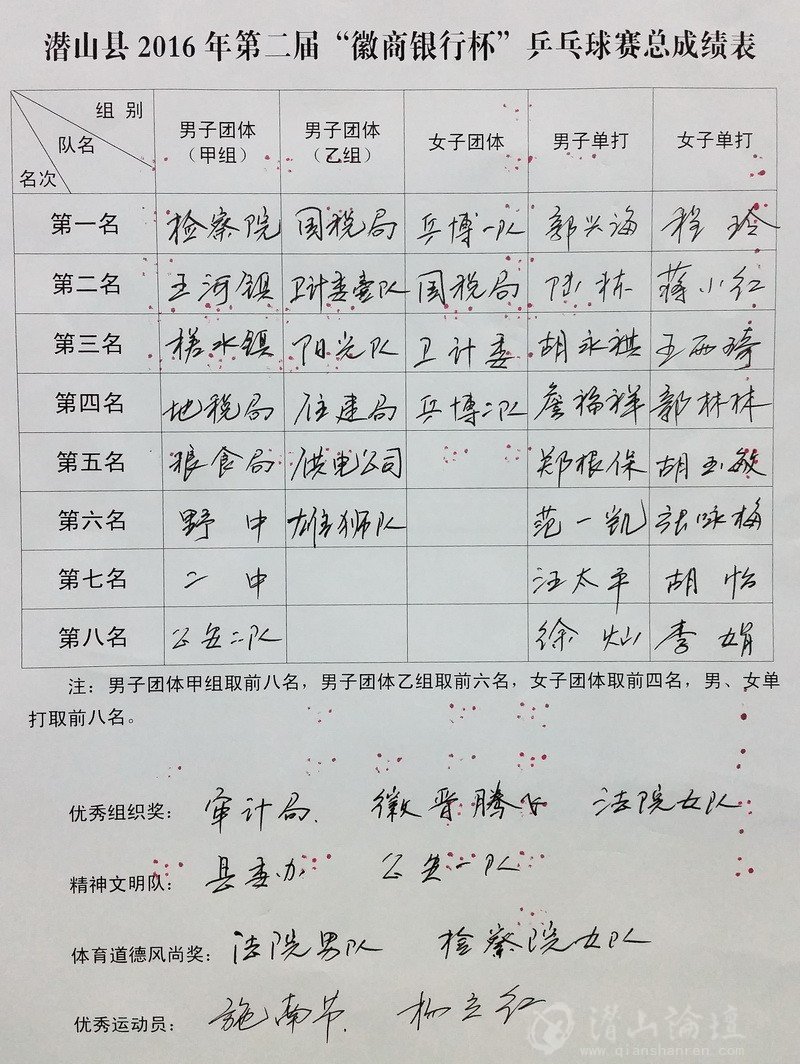 潜山县2016年第二届“徽商银行杯”乒乓球赛总成绩表
组别 队名 名次 男子团体（甲组） 男子团体（乙组） 女子团体 男子单打 女子单打
第一名 检察院 国税局 兵博一队 郭兴海 程玲
第二名 王河镇 卫计委壹队 国税局 陆栋 蒋小红
第三名 槎水镇 阳光队 卫计委 胡永祺 王西琦
第四名 地税局 住建局 兵博二队 詹福祥 郭林林
第五名 粮食局 供电公司 郑根保 胡玉敏
第六名 野中 雄狮队 范一凯 张咏梅
第七名 二中 汪太平 胡怡
第八名 公安二队 徐灿 李娟
注：男子团体甲组取前八名，男子团体乙组取前六名，女子团体取前四名，男、女单
打取前八名。
优秀组织奖： 审计局. 徽晋腾飞 法院女队
精神文明队： 县委办 公安一队
体育道德风尚奖： 法院男队 检察院女队
优秀运动员： 施南节. 柳立红
潜山论坛
www.qianshanren.com